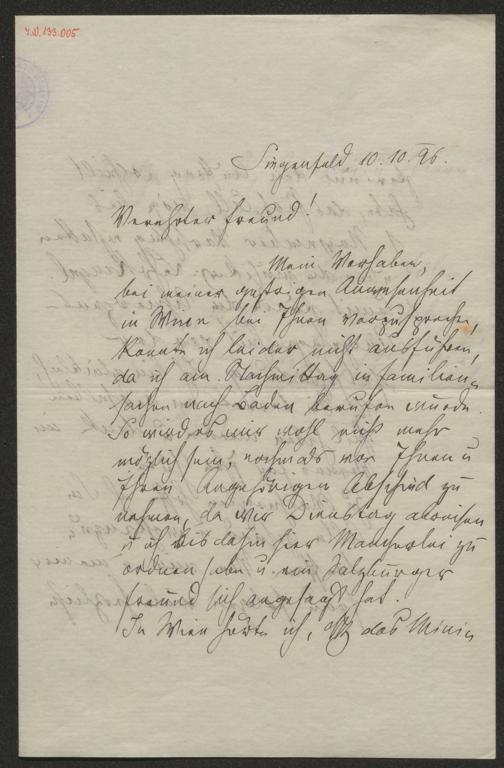 Y.W.133.005
Siegenfeld 10.10.96.
Verehrter Freund!
Mein Vorhaben,
bei meiner gestrigen Anwesenheit
in Wien bei Ihnen vorzusprechen,
konnte ich leider nicht ausführen,
da ich am Nachmittag in Familien-
sachen nach Baden berufen wurde.
So wird es mir wohl nicht mehr
möglich sein, nochmals von Ihnen u
Ihren Angehörigen Abschied zu
nehmen, da wir Dienstag abreisen
u ich bis dahin hier Mancherlei zu
ordnen habe u. ein Salzburger
Freund sich angesagt hat.
In Wien hörte ich, daß das Minis